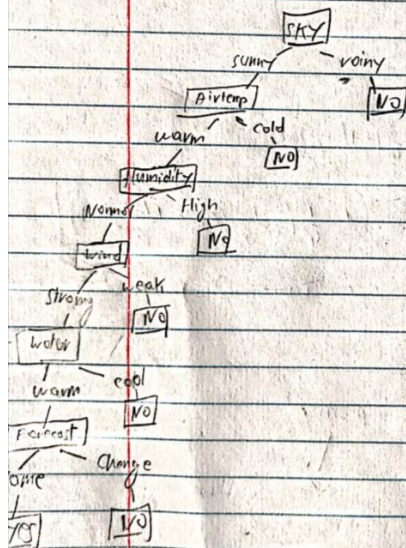 SKY
sunny rainy
Airtemp NO
warm cold
NO
Humidity
Normal High
No
Wind
Strong weak
NO
Water
warm cool
NO
Forecast
ome Change
YES NO